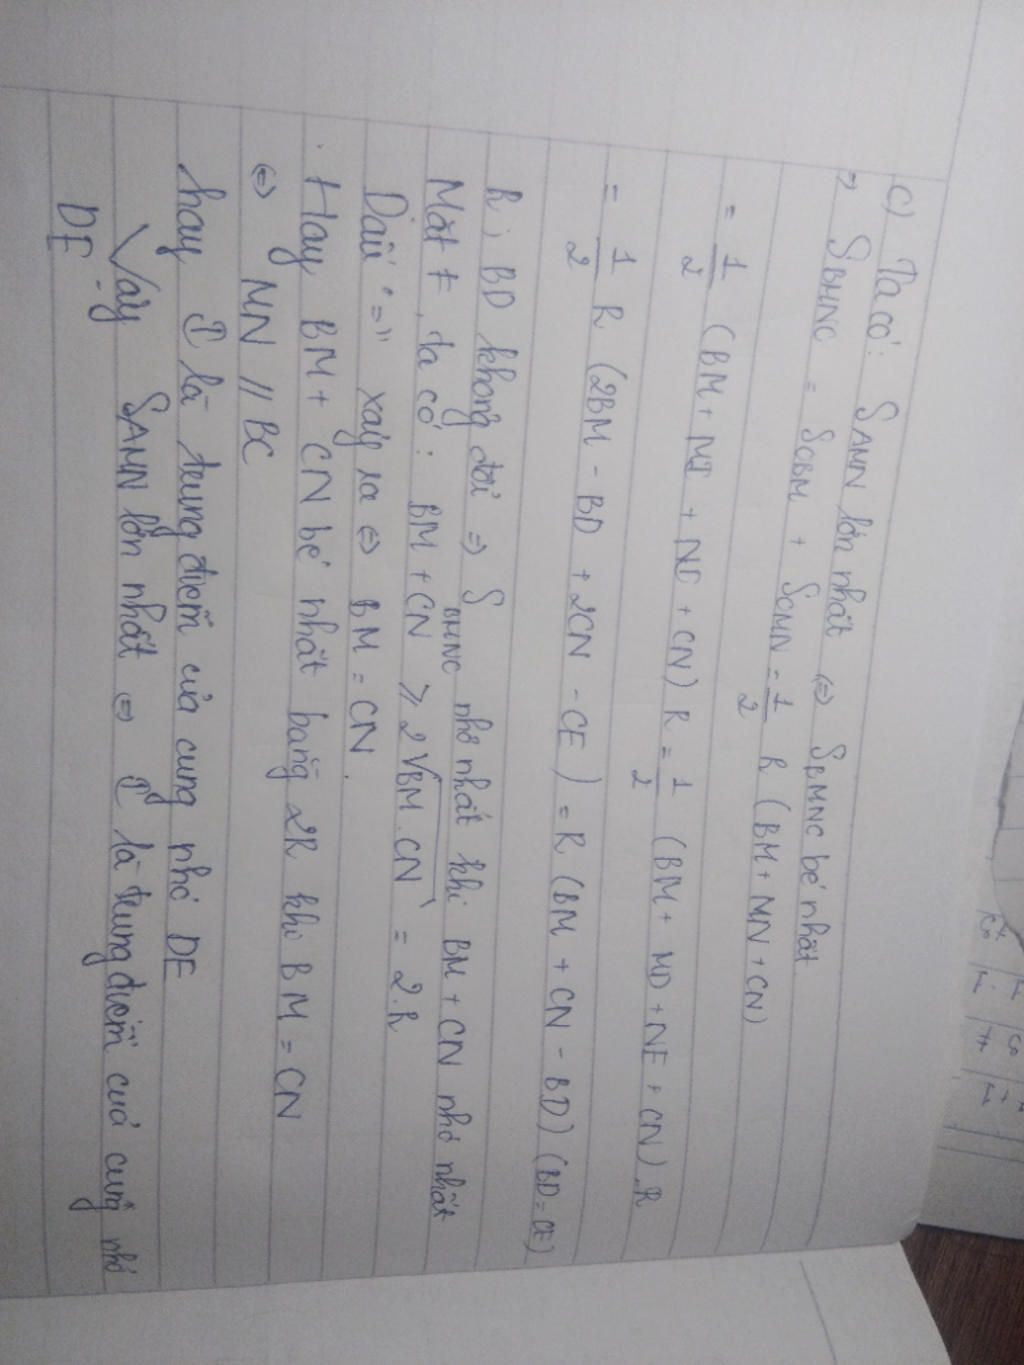 c) Ta có: SAMN lớn nhất ⇔ SBMNC bé nhất
⇒ SBMNC = SOBM + SOMN = 1/2 R (BM + MN + CN)
= 1/2 (BM + MI + NI + CN) R = 1/2 (BM + MD + NE + CN).R
= 1/2 R (2BM - BD + 2CN - CE) = R (BM + CN - BD) (BD = CE)
R; BD không đổi ⇒ SBMNC nhỏ nhất khi BM + CN nhỏ nhất
Mặt ≠, ta có: BM + CN ≥ 2√BM.CN = 2.R
Dấu "=" xảy ra ⇔ BM = CN.
Hay BM + CN bé nhất bằng 2R khi BM = CN
⇔ MN // BC
hay I là trung điểm của cung nhỏ DE
Vậy SAMN lớn nhất ⇔ I là trung điểm của cung nhỏ
DE.